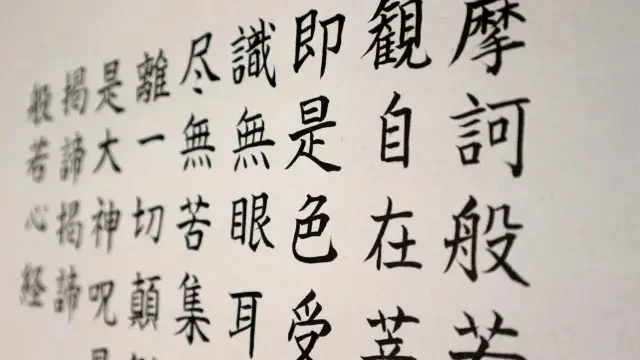 摩訶般若
観自在菩
即是色受
識無眼耳
尽無苦集
離一切顛
是大神呪是
掲諦掲諦
般若心経